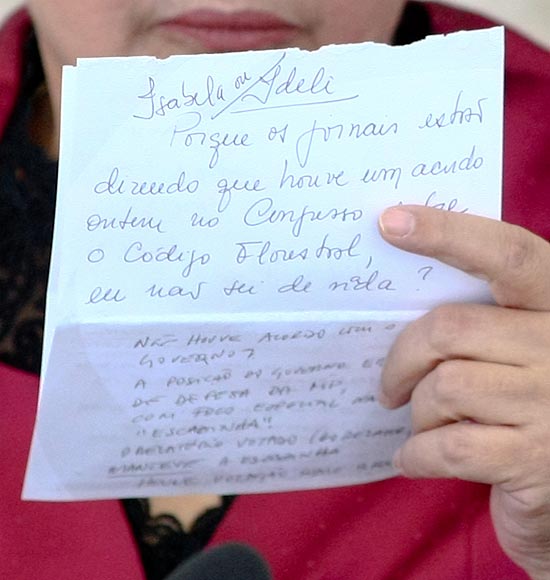 Isabela ou Ideli
Porque os jornais estão
dizendo que houve um acordo
ontem no Congresso sobre
o Código Florestal,
eu não sei de nada?
NÃO HOUVE ACORDO COM O
GOVERNO?
A POSIÇÃO DO GOVERNO E
DE DEFESA DA MP,
COM FOCO ESPECIAL NA
"ESCADINHA".
O RELATÓRIO VOTADO
MANTEVE A ESCADINHA
HOUVE VOTAÇÃO